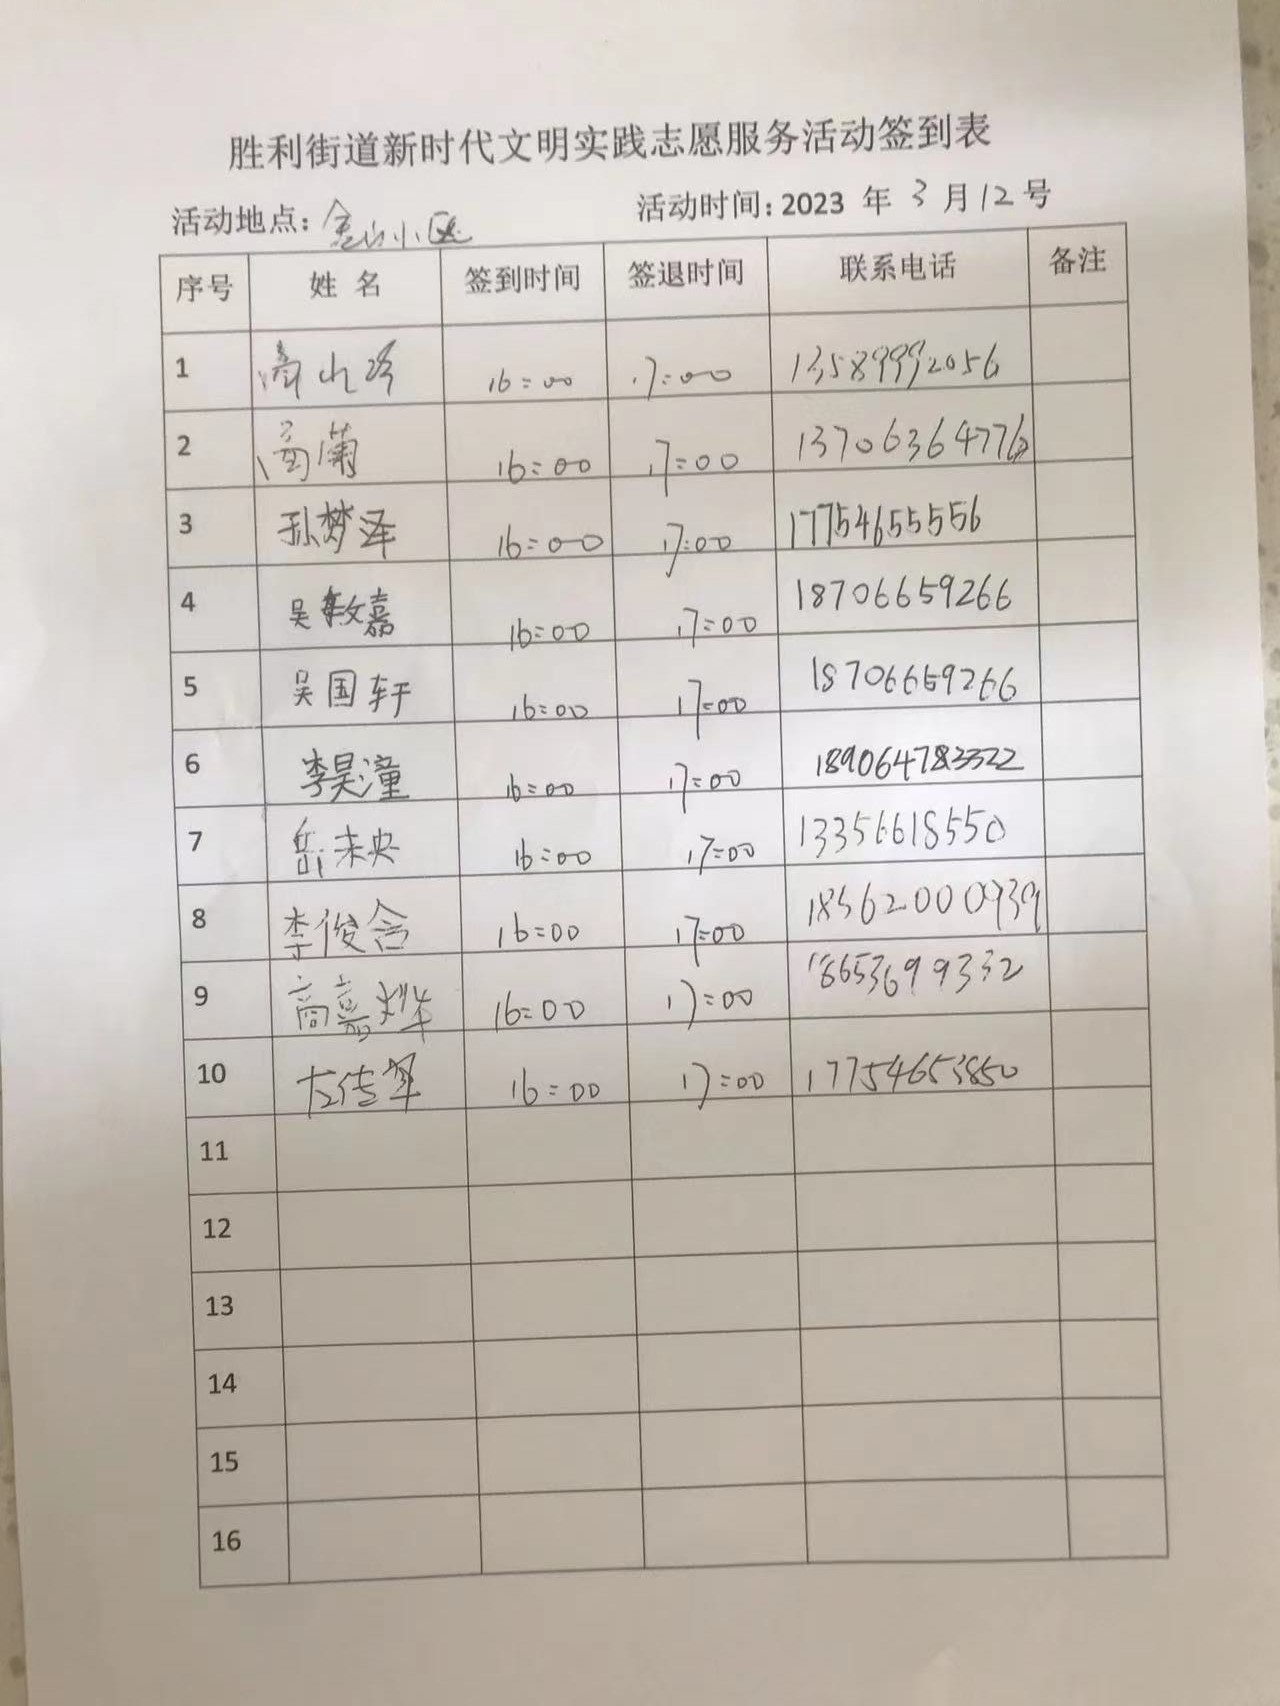 胜利街道新时代文明实践志愿服务活动签到表
活动地点: 金山小区 活动时间: 2023 年 3 月 12 号
序号 姓 名 签到时间 签退时间 联系电话 备注
1 16:00 17:00 13589992056
2 16:00 17:00 1370636477
3 孙梦泽 16:00 17:00 17754655556
4 吴敏嘉 16:00 17:00 18706659266
5 吴国轩 16:00 17:00 18706659266
6 李昊潼 16:00 17:00 189064783322
7 岳未央 16:00 17:00 13356618550
8 李俊含 16:00 17:00 18562000939
9 商嘉烨 16:00 17:00 18653699332
10 16:00 17:00 17754653850
11
12
13
14
15
16